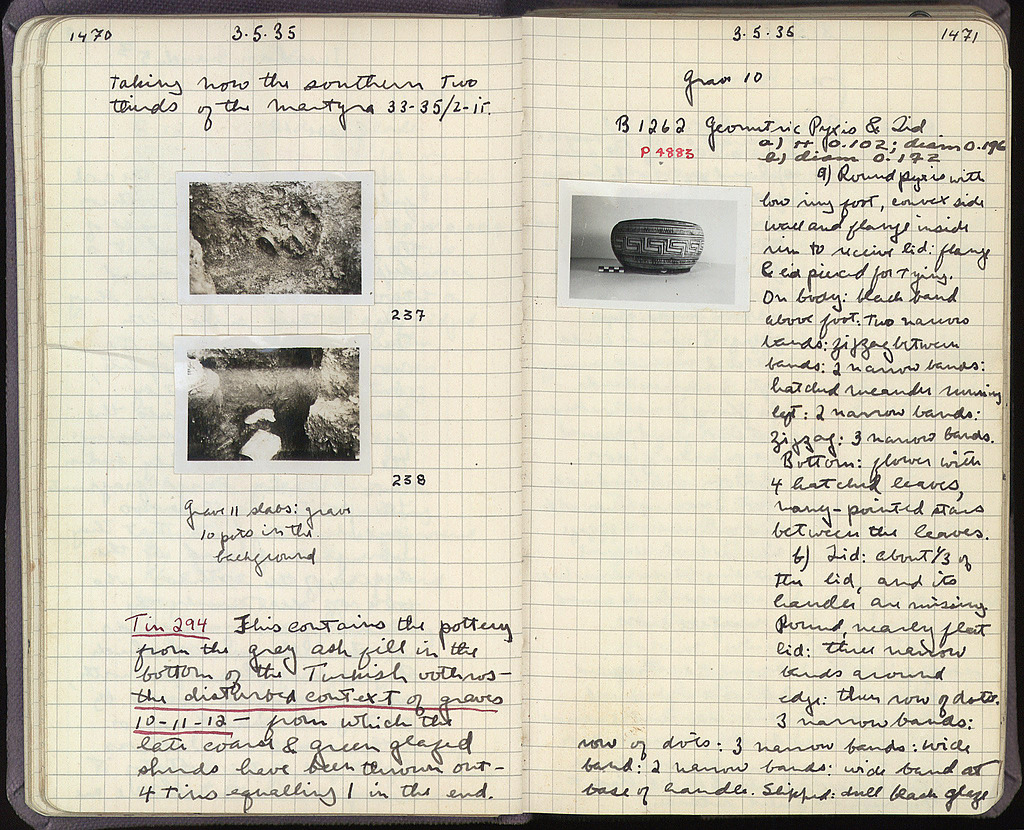 1470
3·5·35
Taking now the southern two
thirds of the martyra 33-35/2-ιτ.
237
238
Grave 11 slabs: grave
10 pots in the
background
Tin 294 This contains the pottery
from the grey ash fill in the
bottom of the Turkish bothros -
the disturbed context of graves
10-11-12 - from which the
late coarse & green glazed
sherds have been thrown out -
4 tins equalling 1 in the end.
3·5·35
1471
Grave 10
B 1262 Geometric Pyxis & Lid.
P 4883
a) H 0.102; diam 0.196
b) diam 0.172
a) Round pyxis with
low ring foot, convex side
wall and flange inside
rim to receive lid: flange
& lid pierced for tying.
On body: black band
above foot: two narrow
bands: zigzag between
bands: 2 narrow bands:
hatched meander running
left: 2 narrow bands:
zigzag: 3 narrow bands.
Bottom: flower with
4 hatched leaves,
many-pointed stars
between the leaves.
b) Lid: about 1/3 of
the lid, and its
handle are missing
Round, nearly flat
lid: three narrow
bands around
edge: then row of dots:
3 narrow bands:
row of dots: 3 narrow bands: wide
band: 2 narrow bands: wide band at
base of handle. Slipped: dull black glaze